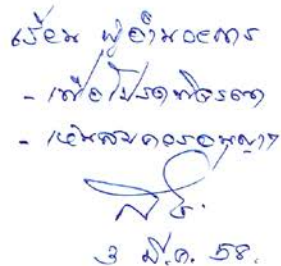 เรียน ผู้อำนวยการ
- เพื่อโปรดพิจารณา
- เห็นสมควรอนุญาต
3 มี.ค. 58.